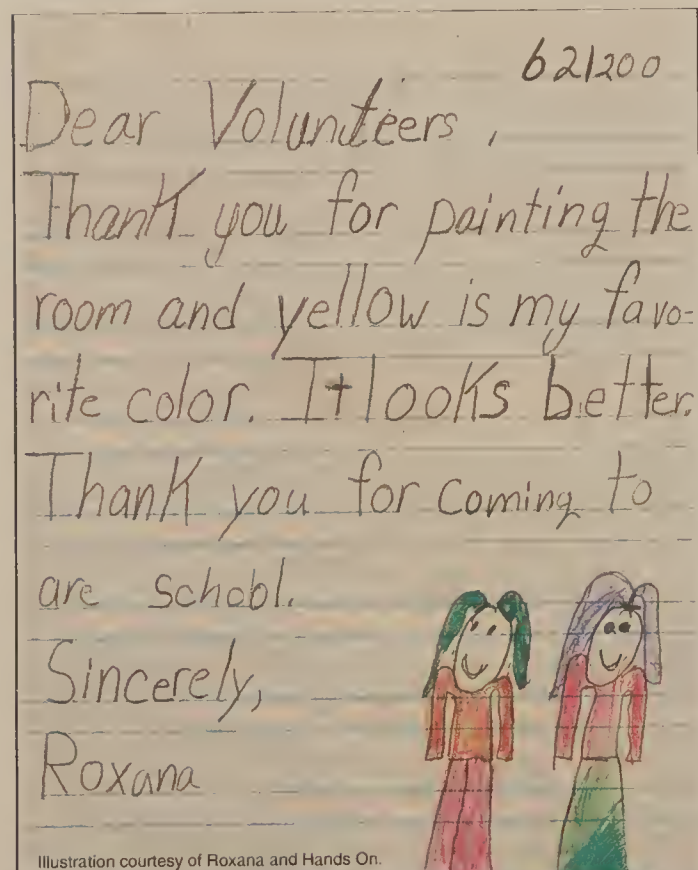 621200
Dear Volunteers,
Thank you for painting the
room and yellow is my favo=
rite color. It looks better.
Thank you for coming to
are school.
Sincerely,
Roxana
Illustration courtesy of Roxana and Hands On.